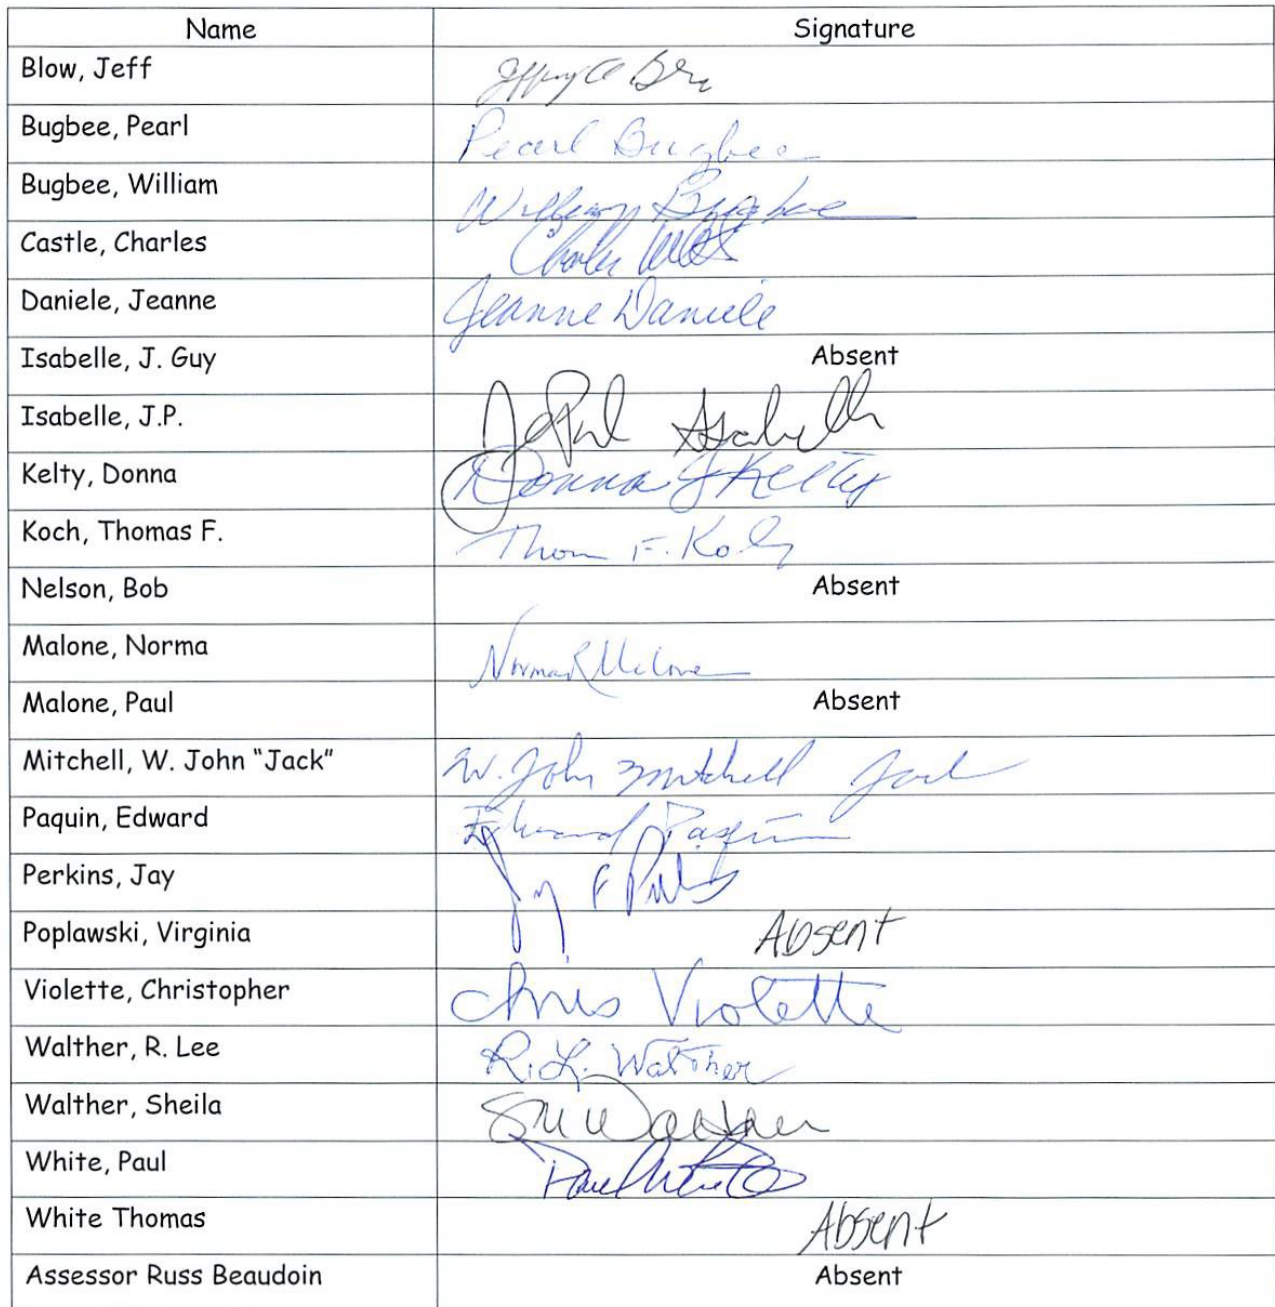 Name Signature
Blow, Jeff
Bugbee, Pearl Pearl Bugbee
Bugbee, William William Bugbee
Castle, Charles Charles
Daniele, Jeanne Jeanne Daniele
Isabelle, J. Guy Absent
Isabelle, J.P. J Paul Isabelle
Kelty, Donna Donna J Kelty
Koch, Thomas F. Thom F. Koch
Nelson, Bob Absent
Malone, Norma Norma R Malone
Malone, Paul Absent
Mitchell, W. John “Jack” W. John Mitchell Jack
Paquin, Edward Edward Paquin
Perkins, Jay Jay E
Poplawski, Virginia Absent
Violette, Christopher Chris Violette
Walther, R. Lee R. L. Walther
Walther, Sheila SM Walther
White, Paul Paul White
White Thomas Absent
Assessor Russ Beaudoin Absent